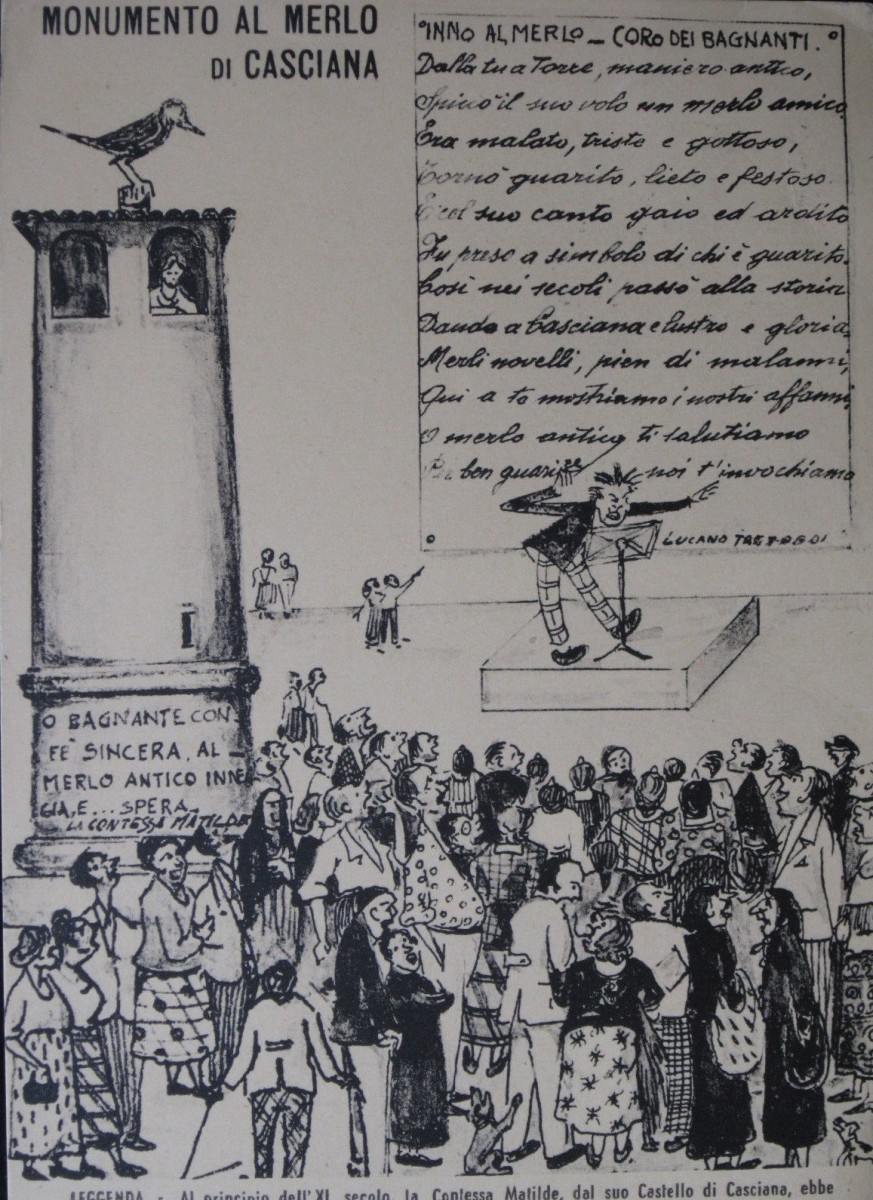 MONUMENTO AL MERLO
DI CASCIANA
INNO AL MERLO - CORO DEI BAGNANTI.
Dalla tua Torre, maniero antico,
Spiccò il suo volo un merlo amico.
Era malato, triste e gottoso,
Tornò guarito, lieto e festoso.
E col suo canto gaio ed ardito
Fu preso a simbolo di chi è guarito.
Così nei secoli passò alla storia
Dando a Casciana e lustro e gloria.
Merli novelli, pien di malanni,
Qui a te mostriamo i nostri affanni,
O merlo antico ti salutiamo
ben guarire noi t'invochiamo
LUCANO
O BAGNANTE CON
FE' SINCERA, AL
MERLO ANTICO INNEG
GIA, E... SPERA.
LA CONTESSA MATILDE
LEGGENDA - Al principio dell'XI secolo la Contessa Matilde, dal suo Castello di Casciana, ebbe